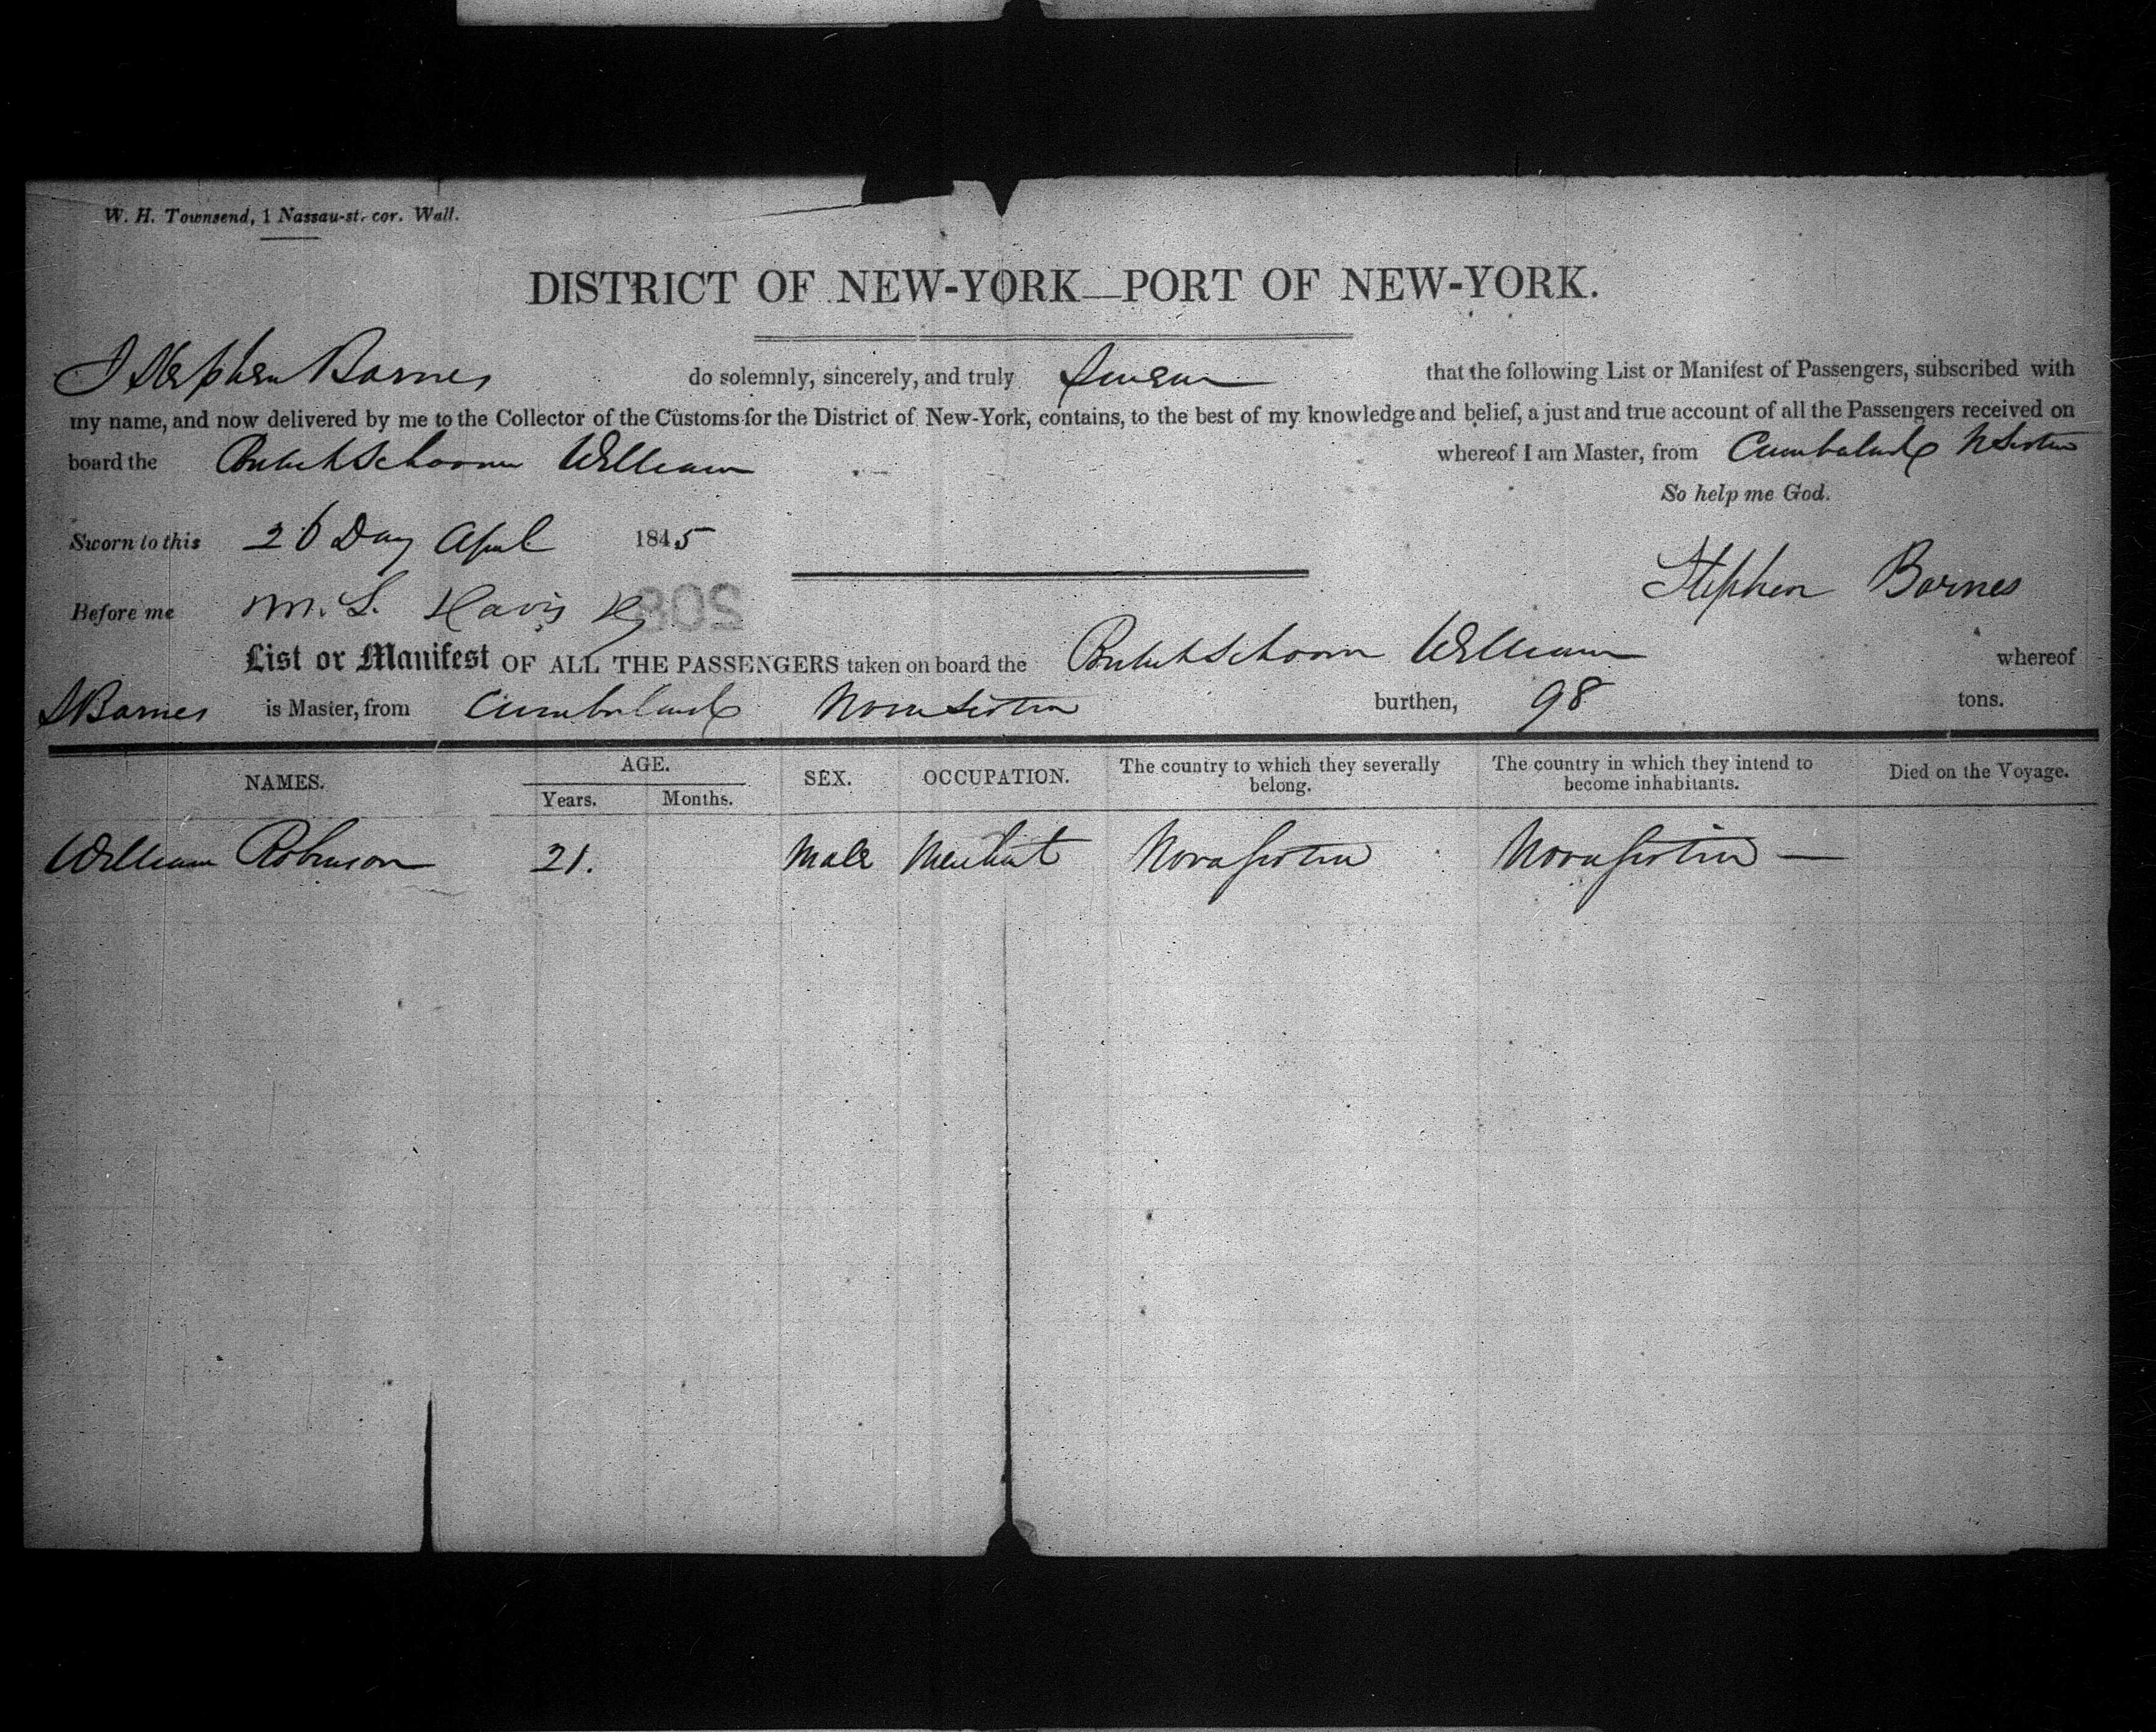 W. H. Townsend, 1 Nassau-st. cor. Wall.
DISTRICT OF NEW-YORK—PORT OF NEW-YORK.
I Stephen Barnes do solemnly, sincerely, and truly Swear that the following List or Manifest of Passengers, subscribed with
my name, and now delivered by me to the Collector of the Customs for the District of New-York, contains, to the best of my knowledge and belief, a just and true account of all the Passengers received on
board the British Schooner William whereof I am Master, from Cumberland N Scotia
So help me God.
Sworn to this 26 Day April 1845
Stephen Barnes
Before me M. L. Davis
208
List or Manifest OF ALL THE PASSENGERS taken on board the British Schooner William whereof
S Barnes is Master, from Cumberland Nova Scotia burthen, 98 tons.
NAMES. AGE. Years. Months. SEX. OCCUPATION. The country to which they severally belong. The country in which they intend to become inhabitants. Died on the Voyage.
William Robinson 21. Male Merchant Nova Scotia Nova Scotia —